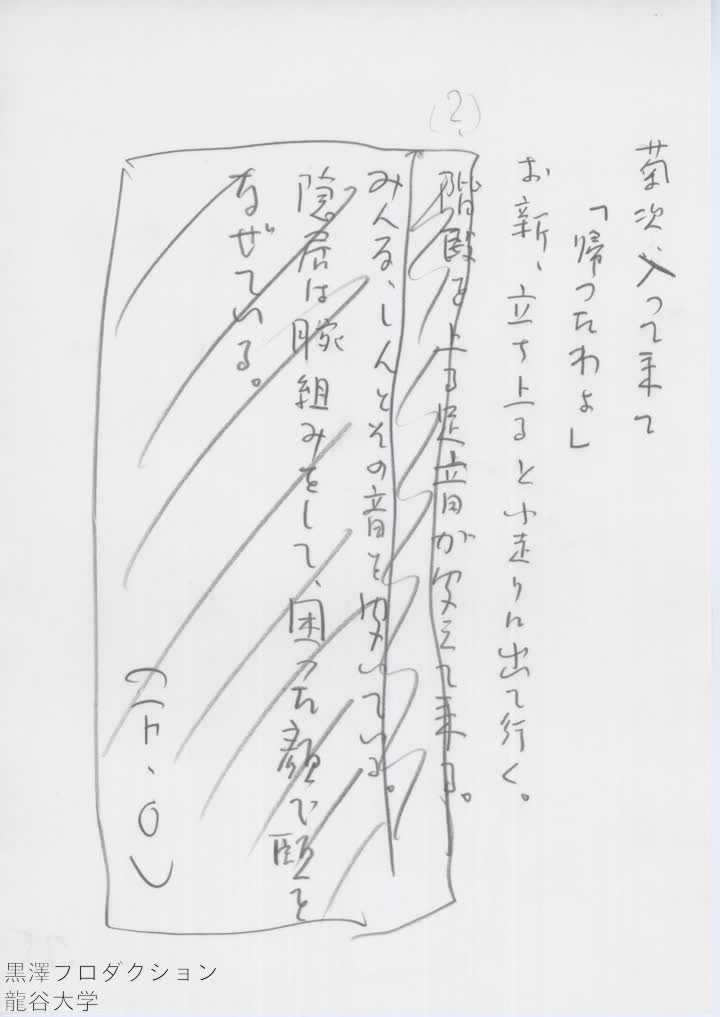 菊次、入って来て
「帰ったわよ」
お新、立ち上ると小走りに出て行く。
(2)
階段を上る足音が聞えて来る。
みんな、しんとその音を聞いている。
隠居は腕組みをして、困った顔で頤を
なぜている。
(F・O)
黒澤プロダクション
龍谷大学